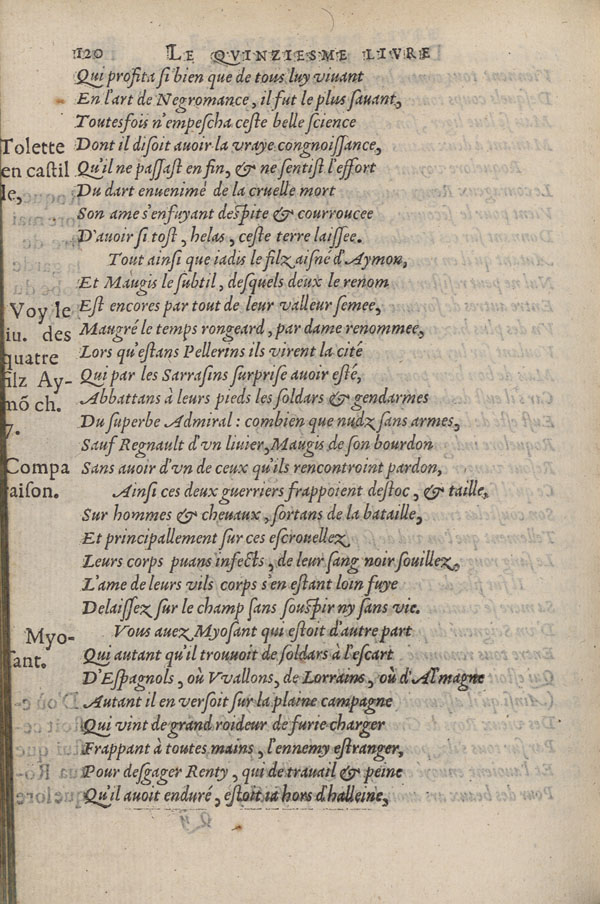 120 LE QVINZIESME LIVRE
Qui profita si bien que de tous luy vivant
En l'art de Negromance, il fut le plus savant,
Toutesfois n'empescha ceste belle science
Dont il disoit avoir la vraye congnoissance,
Qu'il ne passast en fin, & ne sentist l'effort
Du dart envenimé de la cruelle mort
Son ame s'enfuyant despite & courroucee
D'avoir si tost, helas, ceste terre laissee.
Tout ainsi que iadis le filz aisné d'Aymon,
Et Maugis le subtil, desquels deux le renom
Est encores par tout de leur valleur semee,
Maugré le temps rongeard, par dame renommee,
Lors qu'estans Pellerins ils virent la cité
Qui par les Sarrasins surprise avoir esté,
Abbattans à leurs pieds les soldars & gendarmes
Du superbe Admiral: combien que nudz sans armes,
Sauf Regnault d'vn livier, Maugis de son bourdon
Sans avoir d'vn de ceux qu'ils rencontroint pardon,
Ainsi ces deux guerriers frappoient destoc, & taille,
Sur hommes & chevaux, sortans de la bataille,
Et principallement sur ces escrouellez
Leurs corps puans infects, de leur sang noir souillez,
L'ame de leurs vils corps s'en estant loin fuye
Delaissez sur le champ sans souspir ny sans vie.
Vous avez Myosant qui estoit d'autre part
Qui autant qu'il trouvoit de soldars à l'escart
D'Espagnols, où Vvallons, de Lorrains, où d'Almagne
Autant il en versoit sur la plaine campagne
Qui vint de grand roideur de furie charger
Frappant à toutes mains, l'ennemy estranger,
Pour desgager Renty, qui de travail & peine
Qu'il avoit enduré, estoit ia hors d'halleine,
Tolette
en castil
le,
Voy le
iu. des
quatre
filz Ay-
mõ ch.
7.
Compa
raison.
Myo-
sant.